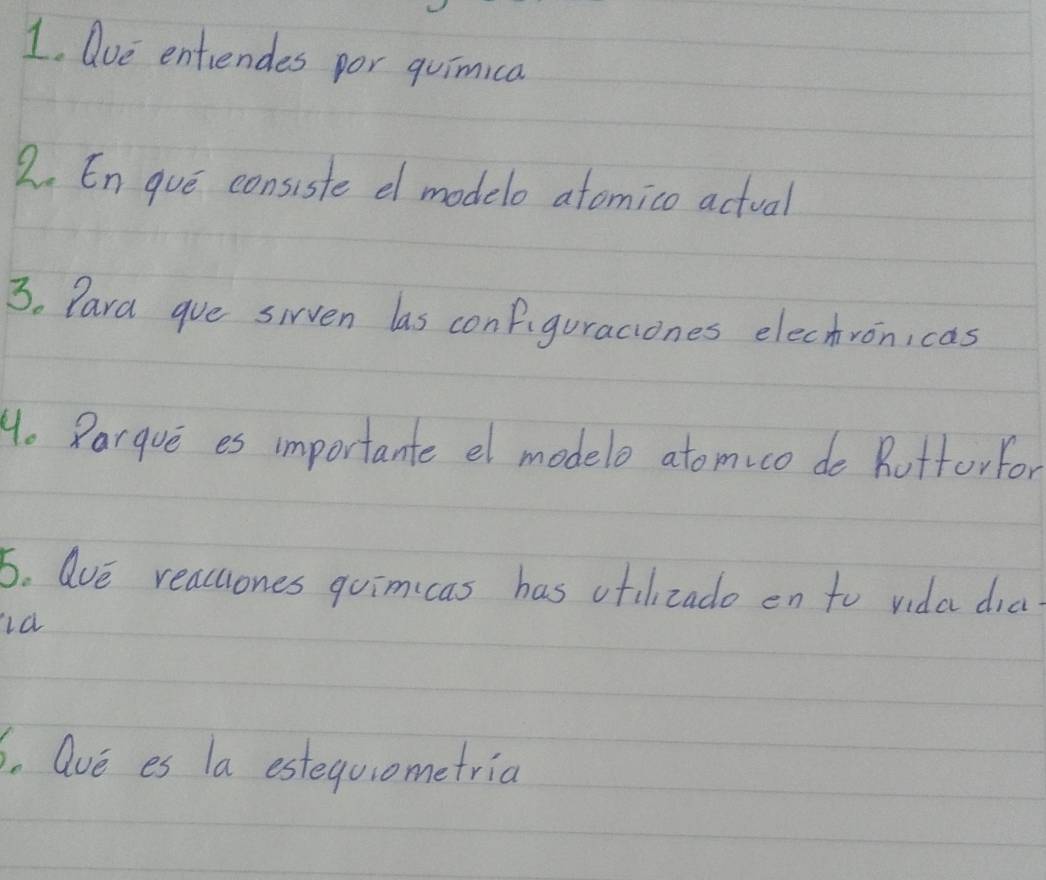 1. Qué entiendes por química
2. En qué consiste el modelo atomico actual
3. Para que sirven las configuraciones electrónicas
4. Parqué es importante el modelo atomico de Rutturfor
5. Qué reacciones quimicas has utilizado en tu vida dia-
ria
6. Qué es la estequiometría